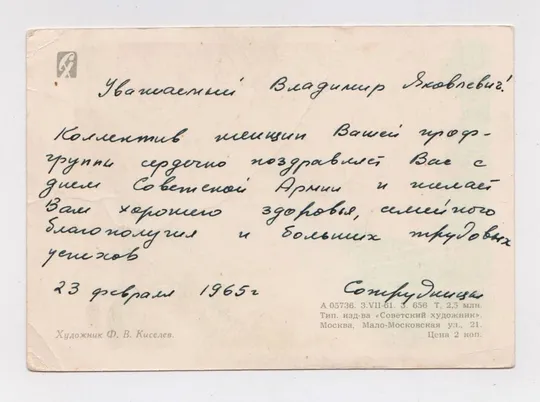 Уважаемый Владимир Яковлевич!
Коллектив женщин Вашей проф-
группы сердечно поздравляет Вас с
днем Советской Армии и желает
Вам хорошего здоровья, семейного
благополучия и больших трудовых
успехов
23 февраля 1965г Сотрудницы
А 05736. 3.VII-61. З. 656 Т. 2,5 млн.
Тип. изд-ва «Советский художник».
Москва, Мало-Московская ул., 21.
Цена 2 коп.
Художник Ф. В. Киселев.